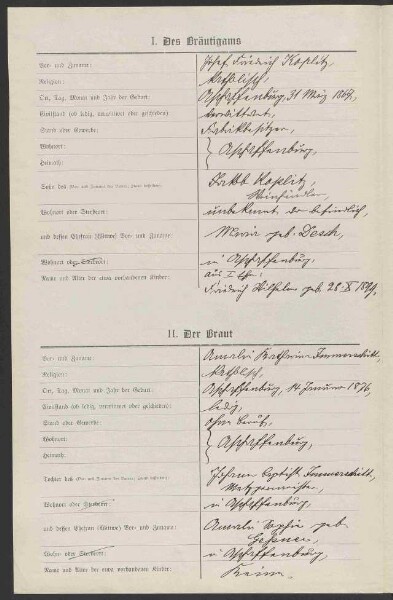 I. Des Bräutigams
Vor- und Zuname: Josef Friedrich Koslitz,
Religion: katholisch,
Ort, Tag, Monat und Jahr der Geburt: Aschaffenburg, 31 März 1869,
Civilstand (ob ledig, verwittwet oder geschieden): verwittwet,
Stand oder Gewerbe: Fabrikbesitzer,
Wohnort: Aschaffenburg,
Heimath:
Sohn des (Vor- und Zuname des Vaters, dessen Gewerbe): Jakob Koslitz,
Weinhändler,
Wohnort oder Sterbeort: unbekannt wo befindlich,
und dessen Ehefrau (Wittwe) Vor- und Zuname: Maria geb. Desch,
Wohnort oder Sterbeort: in Aschaffenburg,
Name und Alter der etwa vorhandenen Kinder: aus I Ehe:
Friedrich Wilhelm geb. 28
II. Der Braut
Vor- und Zuname: Amalie Katharina
Religion: katholisch,
Ort, Tag, Monat und Jahr der Geburt: Aschaffenburg, 14 Januar 1876,
Civilstand (ob ledig, verwittwet oder geschieden): ledig,
Stand oder Gewerbe: ohne Beruf,
Wohnort: Aschaffenburg,
Heimath:
Tochter des (Vor- und Zuname des Vaters, dessen Gewerbe): Johann Baptist
Metzgermeister,
Wohnort oder Sterbeort: in Aschaffenburg,
und dessen Ehefrau (Wittwe) Vor- und Zuname: Amalie Sophie geb.
Wohnort oder Sterbeort: in Aschaffenburg,
Name und Alter der etwa vorhandenen Kinder: Keine.